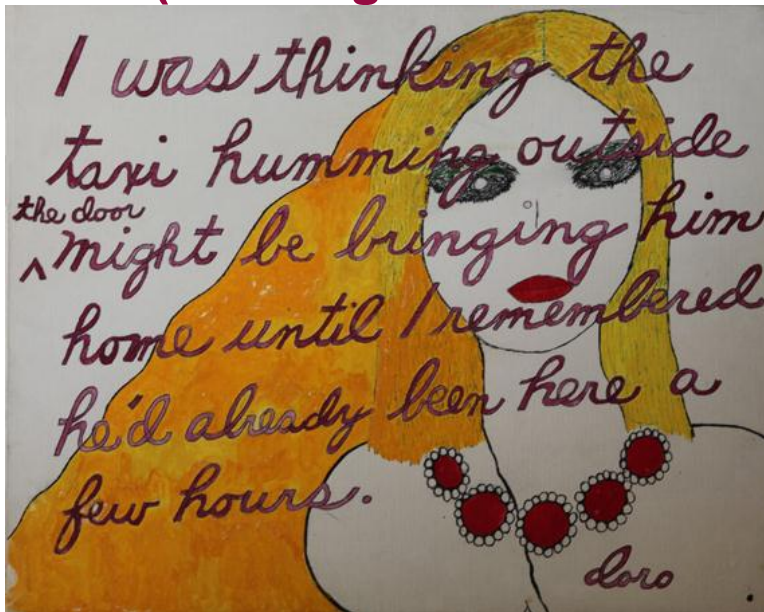 I was thinking the
taxi humming outside
the door
^ might be bringing him
home until I remembered
he'd already been here a
few hours.
doro